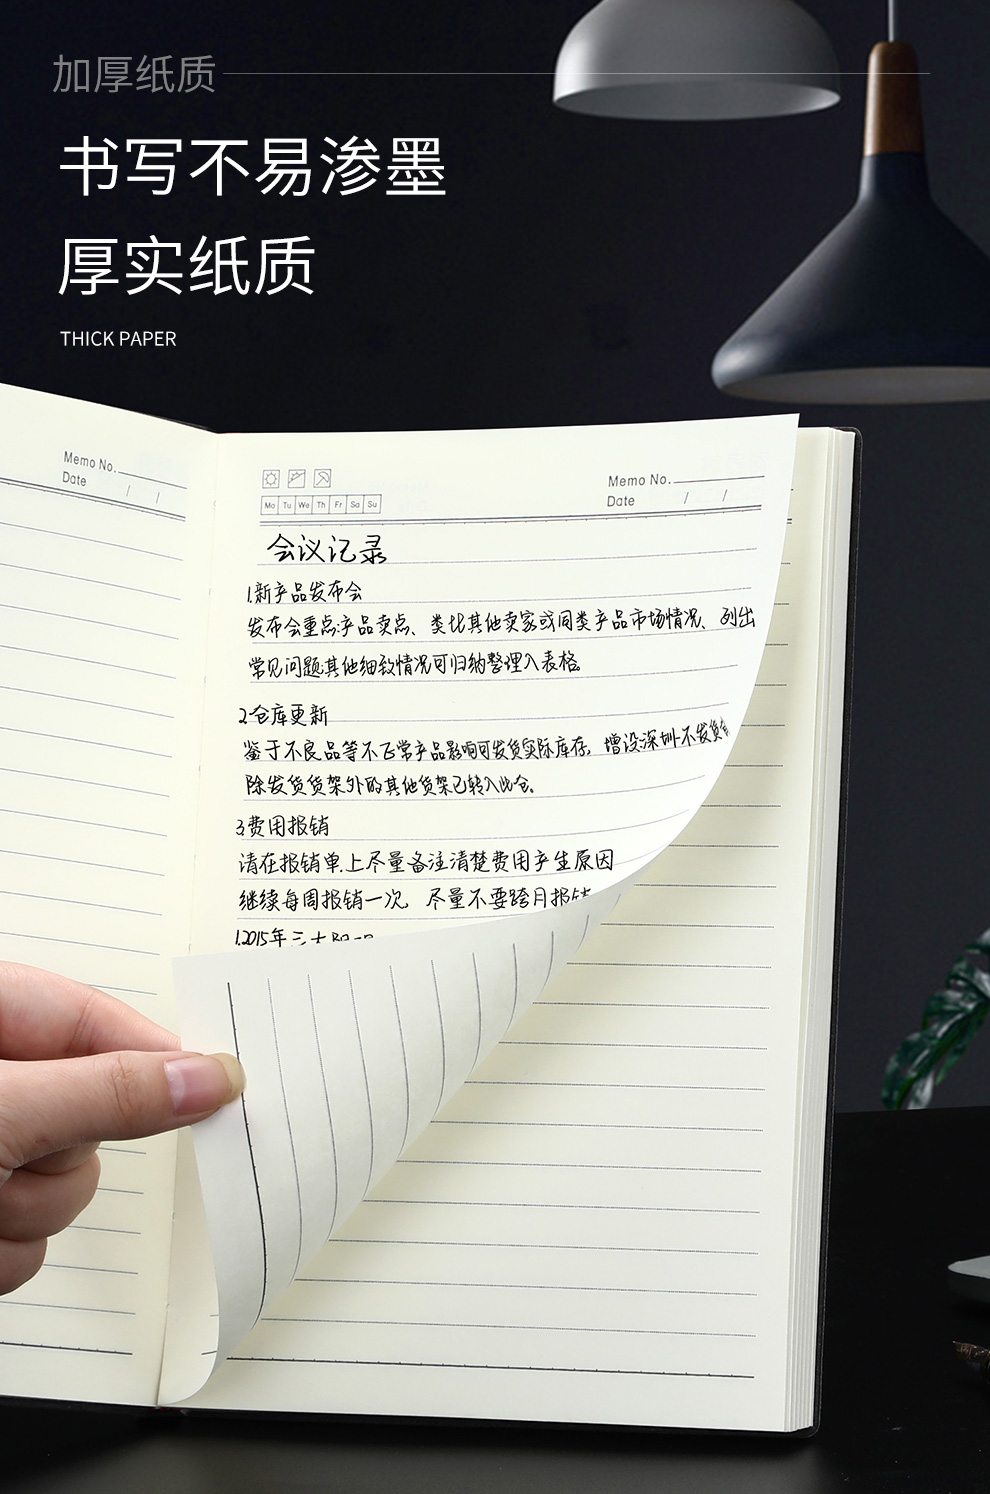 加厚纸质
书写不易渗墨
厚实纸质
THICK PAPER
Memo No.
Date / /
Memo No.
Date / /
Mo Tu We Th Fr Sa Su
会议记录
1.新产品发布会
发布会重点:产品卖点、类比其他卖家或同类产品市场情况、列出
常见问题其他细致情况可归纳整理入表格
2.仓库更新
鉴于不良品等不正常产品影响可发货实际库存,增设深圳-不发货
除发货货架外的其他货架已转入此仓。
3.费用报销
请在报销单上尽量备注清楚费用产生原因
继续每周报销一次 尽量不要跨月报销
1.2015年三